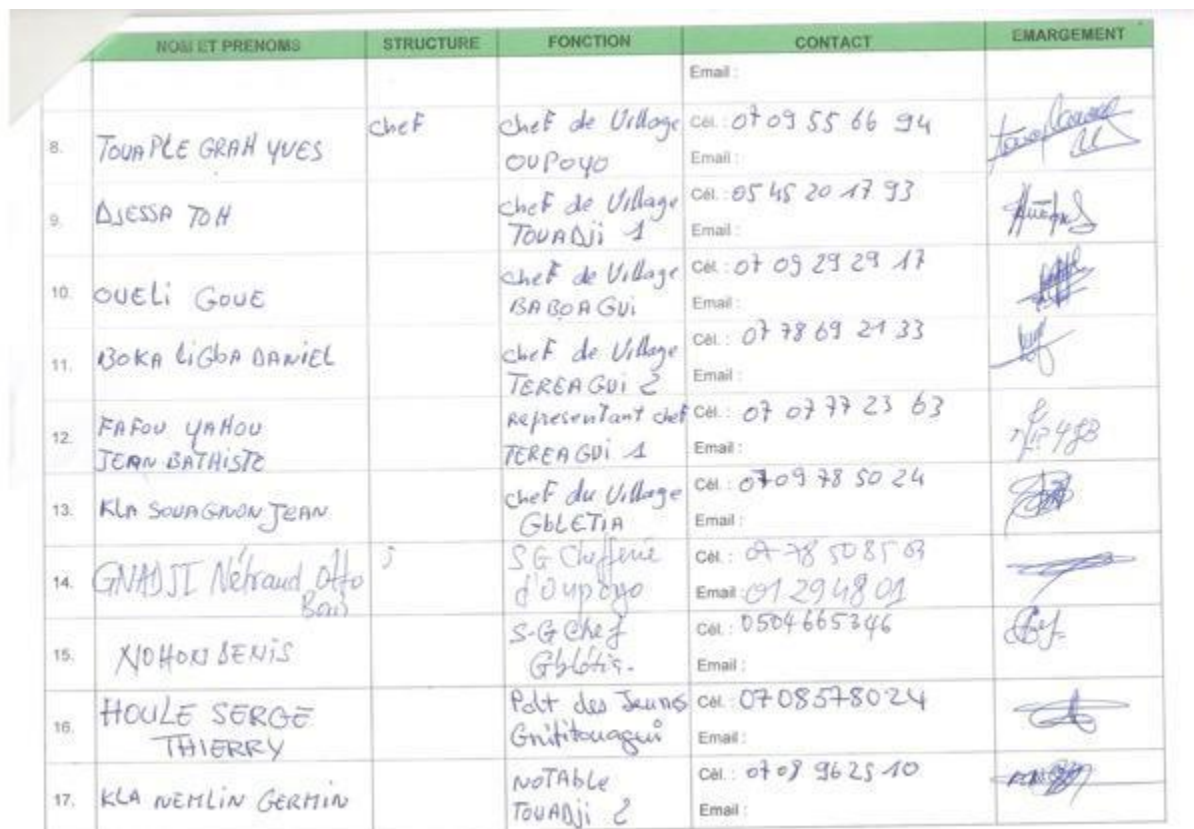 NOM ET PRENOMS STRUCTURE FONCTION CONTACT EMARGEMENT
Email :
8. TOUAPLE GRAH YVES chef chef de Village OUPOYO Cél. : 07 09 55 66 94
Email :
9. DJESSA TOH chef de Village TOUADJi 1 Cél. : 05 45 20 17 93
Email :
10. OUELi GOUE chef de Village BABOAGUi Cél. : 07 09 29 29 17
Email :
11. BOKA LiGbA DANiEL chef de Village TEREAGUi 2 Cél. : 07 78 69 21 33
Email :
12. FAFOU YAHOU JEAN BATHiSTE Representant chef TEREAGUi 1 Cél. : 07 07 77 23 63
Email :
13. KLA SOUAGNON JEAN chef du Village GbLETiA Cél. : 07 09 78 50 24
Email :
14. GNADJI Nétraud Otto SG Chefferie d'Oupoyo Cél. : 07 78 50 85 03
Email : 01 29 48 01
15. NOHON DENiS S-G Chef Gblétia. Cél. : 0504665346
Email :
16. HOULE SERGE THIERRY Pdt des Jeunes Gnititouagui Cél. : 0708578024
Email :
17. KLA NEMLiN GERMiN NOTAble TOUADJi 2 Cél. : 07 08 96 25 10
Email :